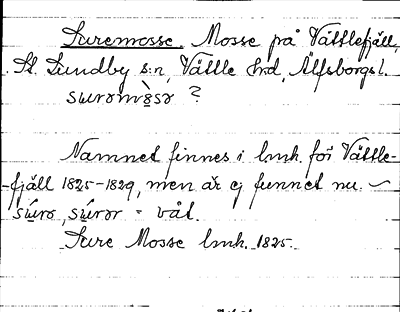 Suremosse. Mosse på Vättlefjäll,
St. Lundby s:n, Vättle hrd, Älfsborgs l.
surømòsø ?
Namnet finnes i lmk. för Vättle-
fjäll 1825-1829, men är ej funnet nu. –
súrø, súrør = våt.
Sure Mosse lmk. 1825.